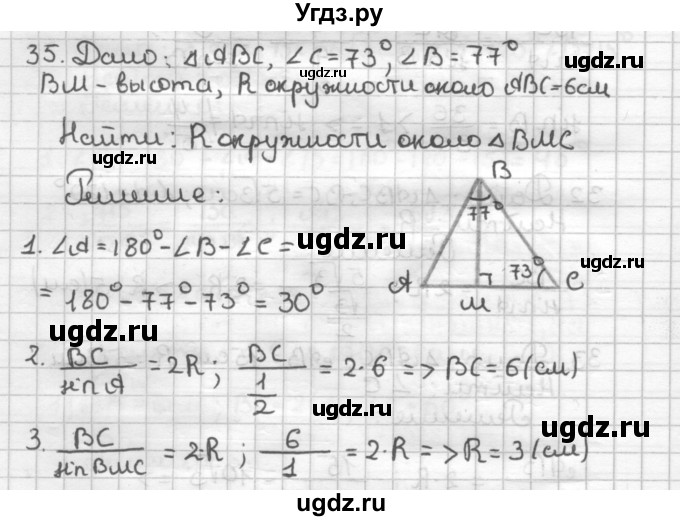 Угдз.ру
35. Дано: △ABC, ∠C=73°, ∠B=77°
BM-высота, R окружности около ABC=6см
Найти: R окружности около △BMC
ugdz.ru
Решение:
B
77°
1. ∠A=180°-∠B-∠C=
ugdz.ru
ugdz.ru
= 180°-77°-73° = 30°
A 73° C
M
ugdz.ru
ugdz.ru
2. BC/sin A = 2R; BC/(1/2) = 2·6 => BC=6(см)
ugdz.ru
ugdz.ru
3. BC/sin BMC = 2·R; 6/1 = 2·R => R=3(см)
ugdz.ru
ugdz.ru
ugdz.ru